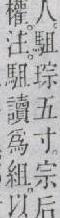 人駔琮五寸宗后
權注駔讀爲組以